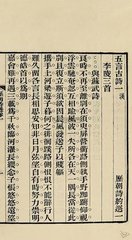 五言古詩一 漢
歷朝詩約選一
李陵三首
與蘇武詩
良時不再至離別在須臾屏營衢路側執手野踟躕仰視
浮雲馳奄忽互相踰風波一失所各在天一隅長當從此
別且復立斯須欲因晨風發送子以賤軀
攜手上河梁遊子暮何之徘徊蹊路側悢悢不得辭行人
難久留各言長相思安知非日月弦望自有時努力崇明
德皓首以為期
嘉會難再遇三載為千秋臨河濯長纓念子悵悠悠遠望